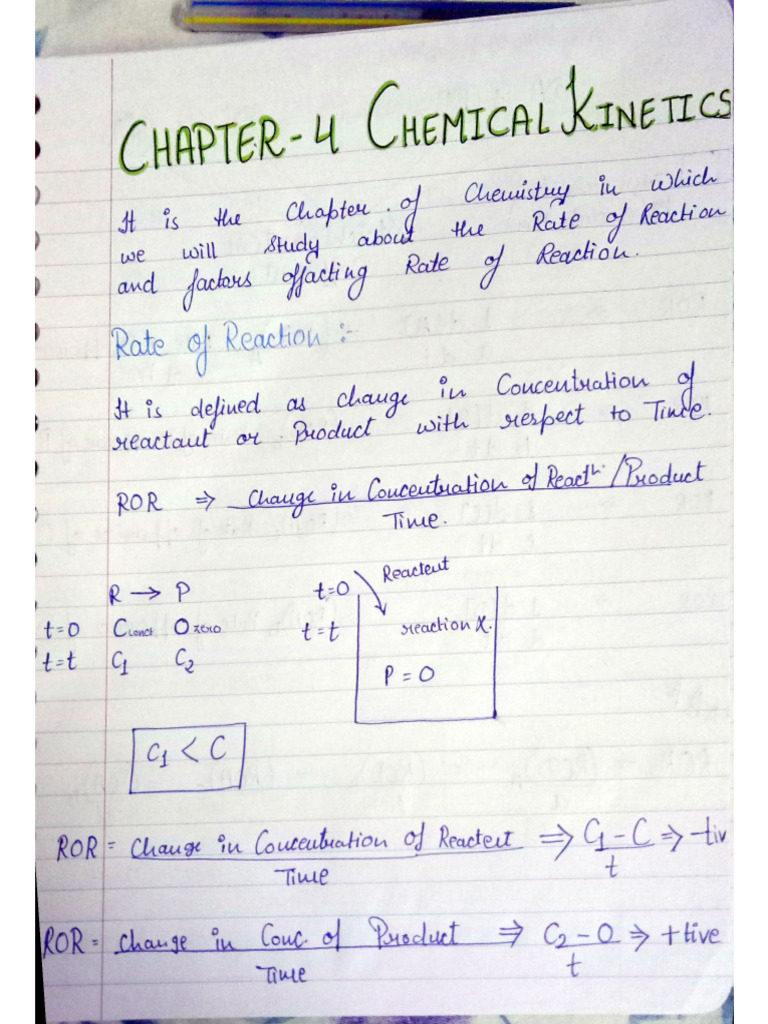 CHAPTER-4 CHEMICAL KINETICS
It is the Chapter of Chemistry in which
we will study about the Rate of Reaction
and factors offacting Rate of Reaction.
Rate of Reaction :-
It is defined as change in Concentration of
reactant or Product with respect to Time.
ROR ⇒ Change in Concentration of Reactn./Product
Time.
R → P
t=0 C conct. O zero
t=t C₁ C₂
t=0 Reactent
t=t reaction X.
P = 0
C₁ < C
ROR = Change in Concentration of Reactert ⇒ C₁ - C ⇒ -tiv
Time t
ROR = Change in Conc. of Product ⇒ C₂ - O ⇒ +tive
Time t